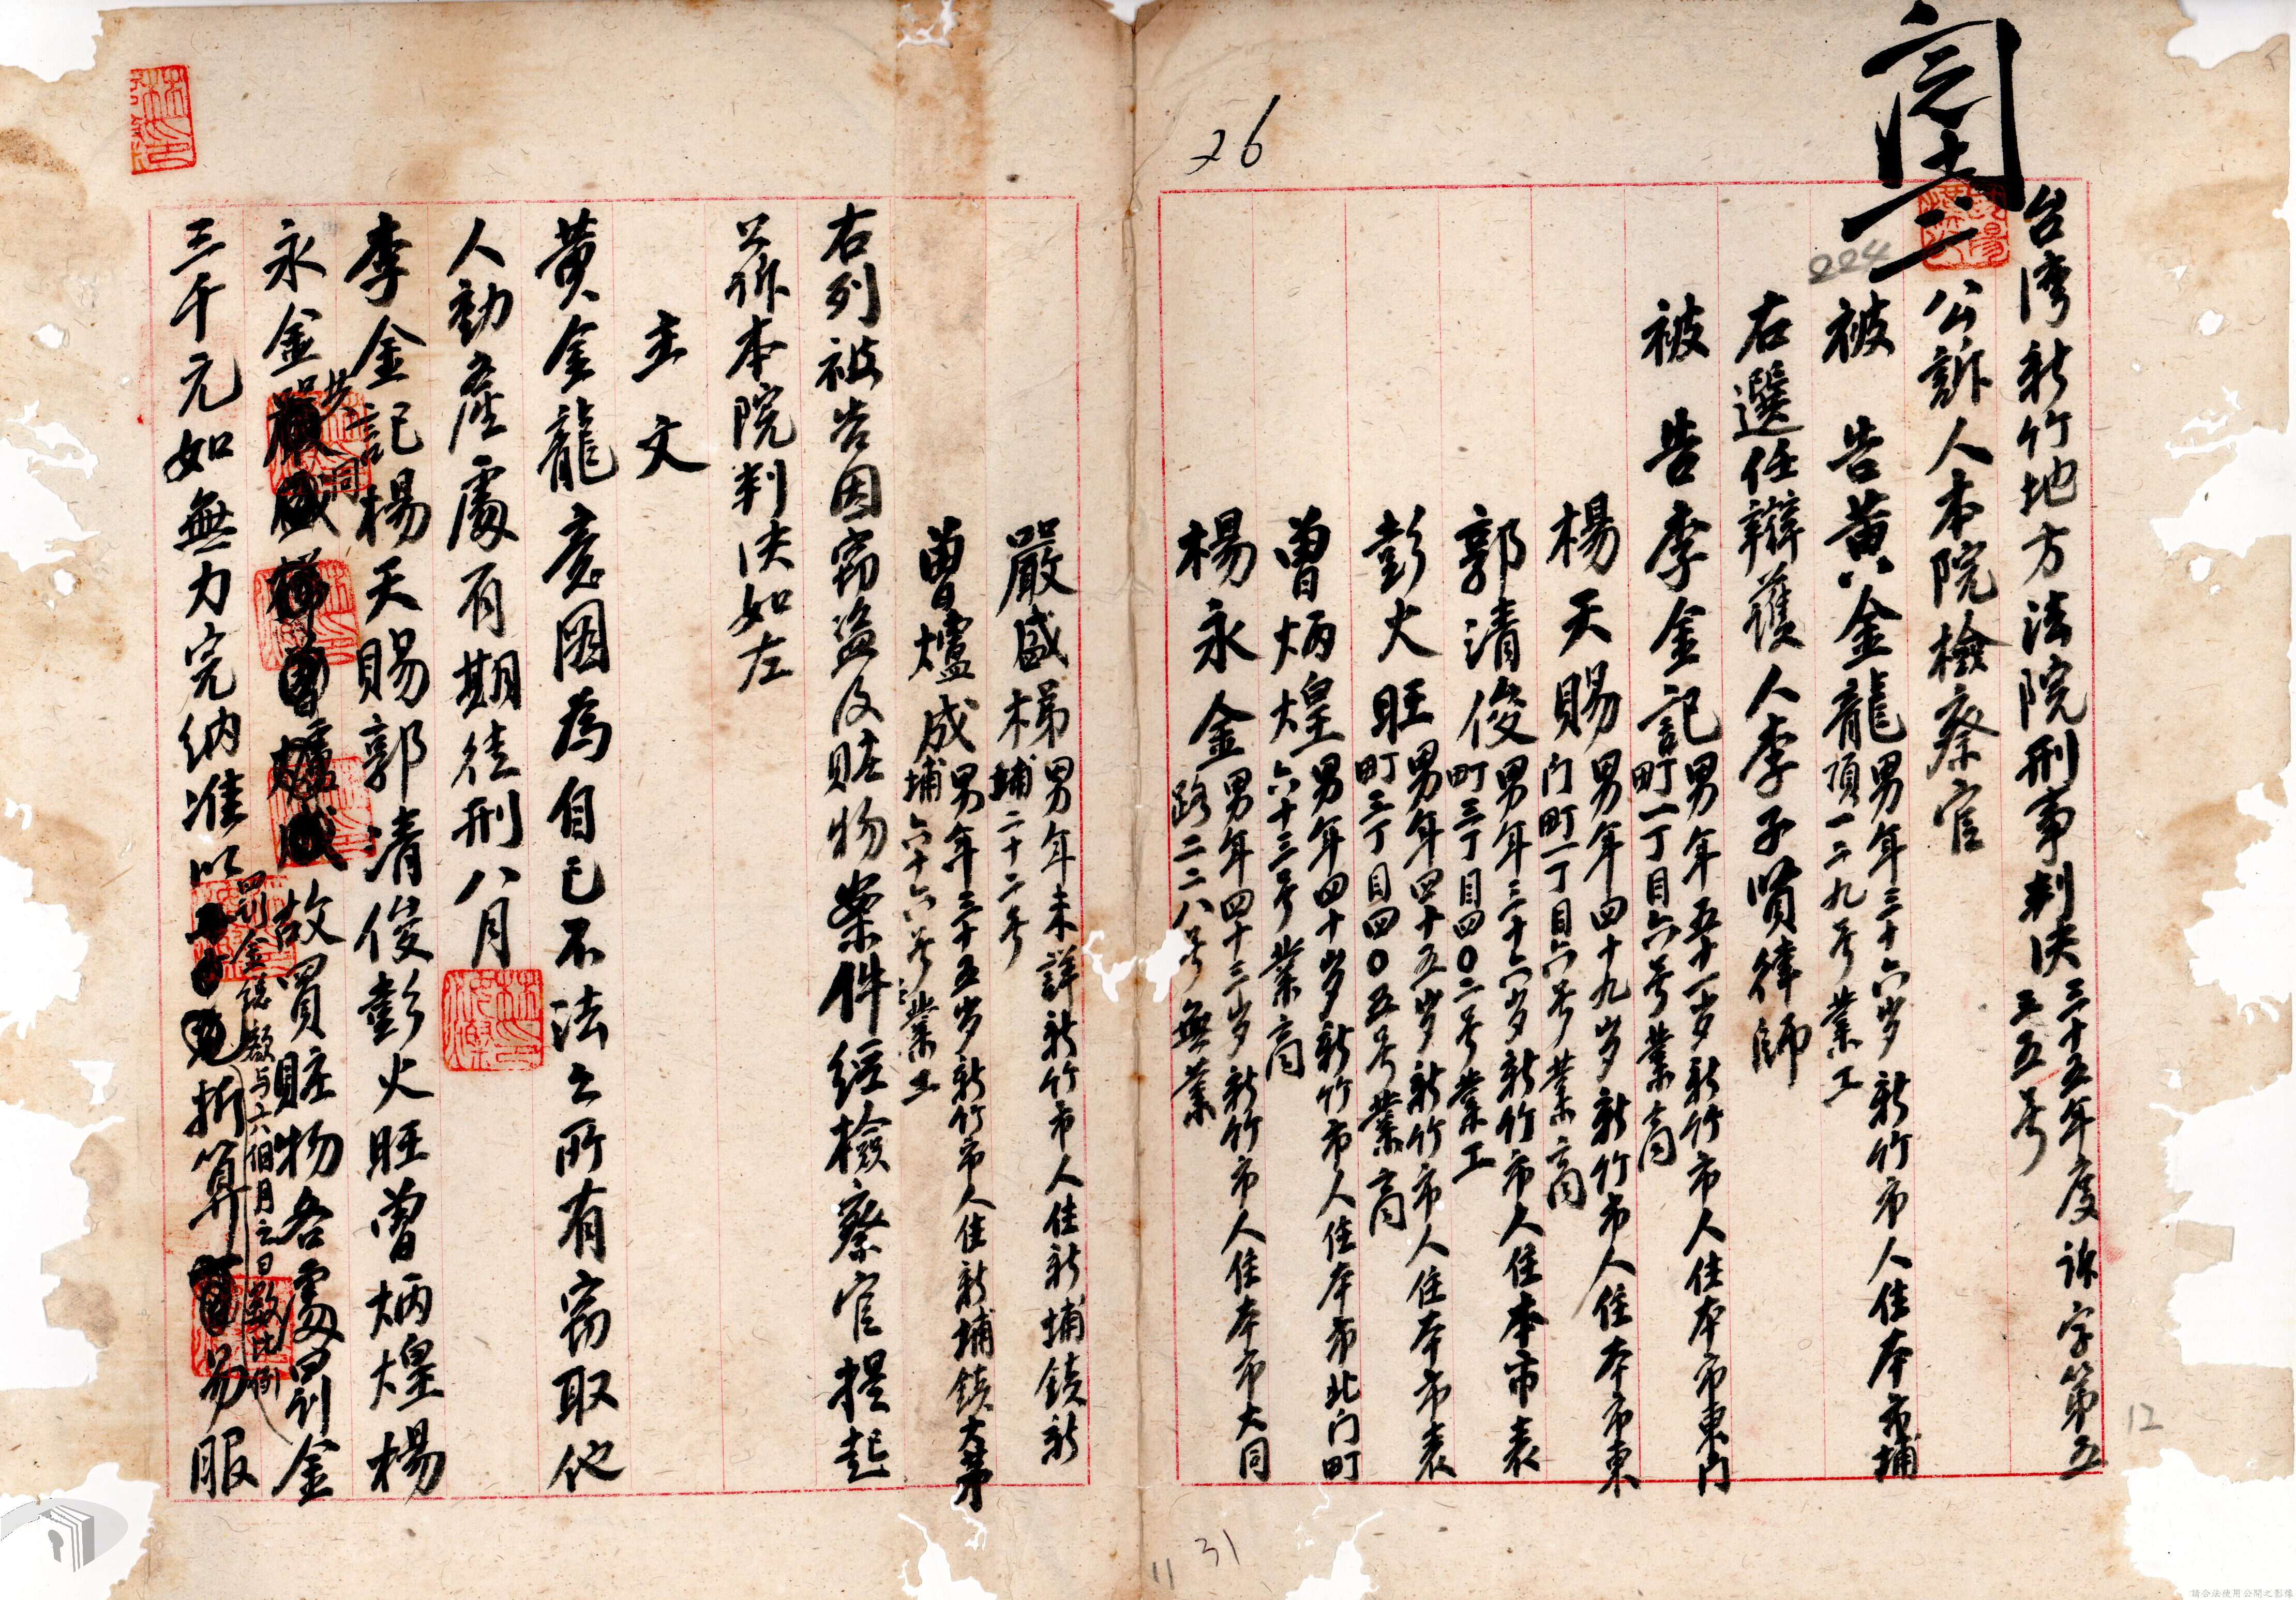 台湾新竹地方法院刑事判决三十五年度訴字第五三五号
公訴人本院檢察官
被告黄金龍男年三十六岁新竹市人住本市埔頂一二九号業工
右選任辯護人李子賢律師
被告李金記男年五十一岁新竹市人住本市東门町一丁目六号業商
楊天賜男年四十九岁新竹市人住本市東门町一丁目六号業商
郭清俊男年三十六岁新竹市人住本市表町三丁目四〇二号業工
彭火旺男年四十五岁新竹市人住本市表町三丁目四〇五号業商
曾炳煌男年四十岁新竹市人住本市北门町六十三号業商
楊永金男年四十三岁新竹市人住本市大同路二二八号無業
26
224
12
31
11
嚴盛梯男年未詳新竹市人住新埔鎮新埔二十二号
曾爐成男年三十五岁新竹市人住新埔鎮大茅埔六十六号業工
右列被告因竊盗及賍物案件経檢察官提起
公訴本院判决如左
主文
黄金龍意圖為自己不法之所有竊取他
人動產處有期徒刑八月
李金記楊天賜郭清俊彭火旺曾炳煌楊
永金共同故買賍物各處罰金
三千元如無力完纳准以罰金總額与六個月之日數比例折算易服
請合法使用公開之影像